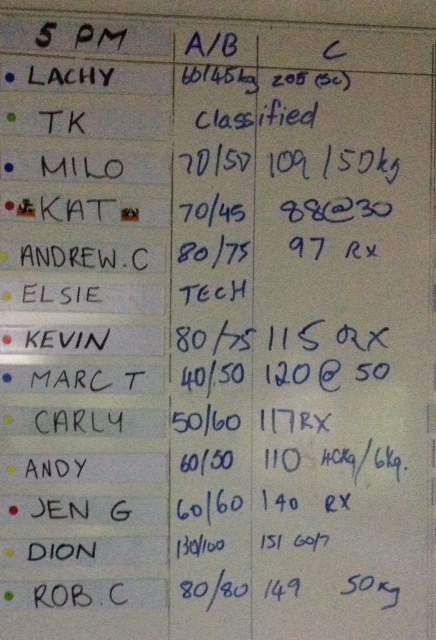 5 PM A/B C
LACHY 60/45kg 205 (SC)
TK Classified
MILO 70/50 109 / 50kg
KAT 70/45 88@30
ANDREW.C 80/75 97 Rx
ELSIE TECH
KEVIN 80/75 115 RX
MARC T 40/50 120 @ 50
CARLY 50/60 117RX
ANDY 60/50 110 40Kg/6Kg.
JEN G 60/60 140 RX
DION 130/100 151 60/7
ROB.C 80/80 149 50Kg